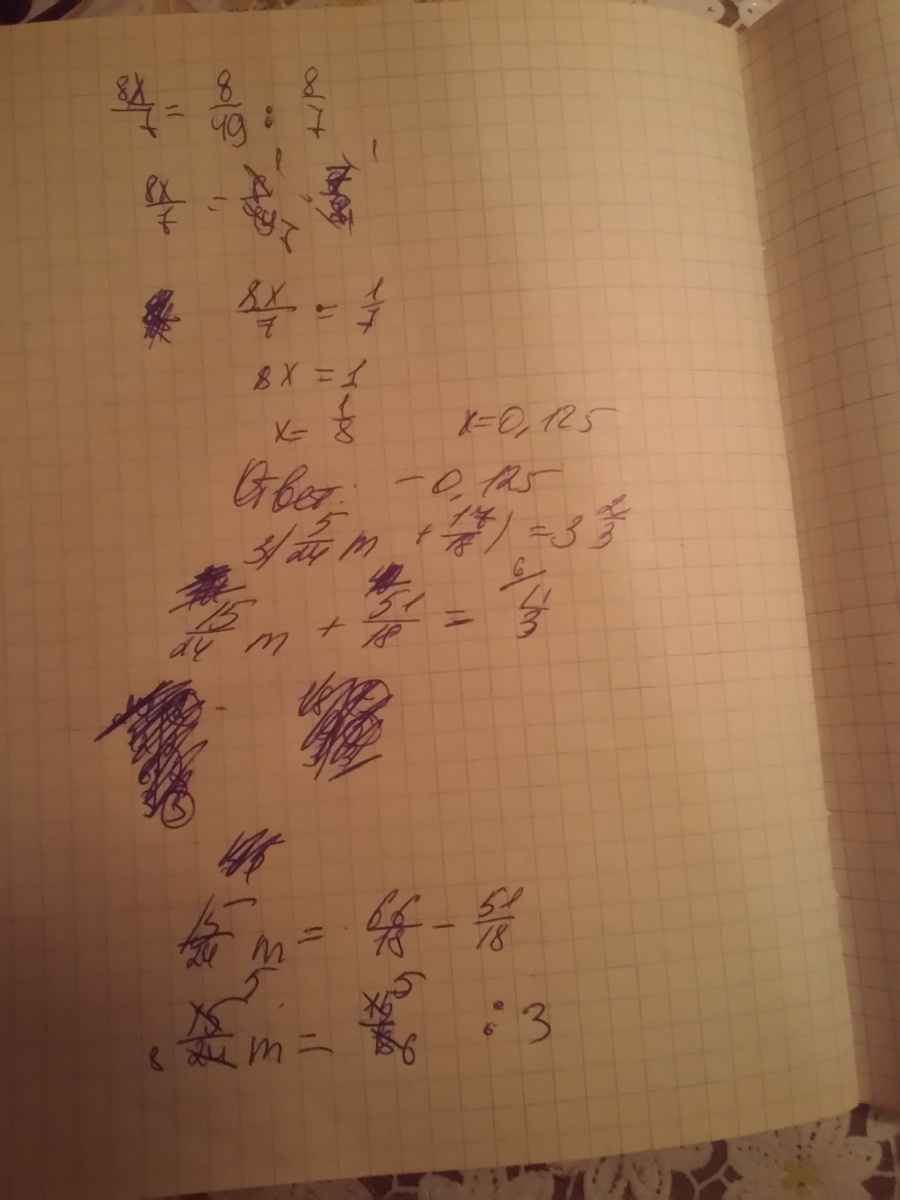 8x/7 = 8/49 : 8/7
8x/7 =
8x/7 = 1/7
8x = 1
x = 1/8 x=0,125
Ответ: - 0,125
3(5/24 m + 17/18) = 3 2/3
15/24 m + 51/18 = 6/ 11/3
3
15/24 m = 66/18 - 51/18
8 15/24 5 m = 15/18 5 6 : 3